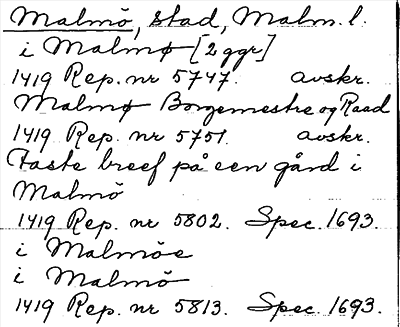 Malmö, stad, Malm. l.
i Malmø [2 ggr]
1419 Rep. nr 5747. avskr.
Malmø Borgemestre og Raad
1419 Rep. nr 5751. avskr.
Faste breef på een gård i
Malmö
1419 Rep. nr 5802. Spec. 1693.
i Malmöe
i Malmö
1419 Rep. nr 5813. Spec. 1693.